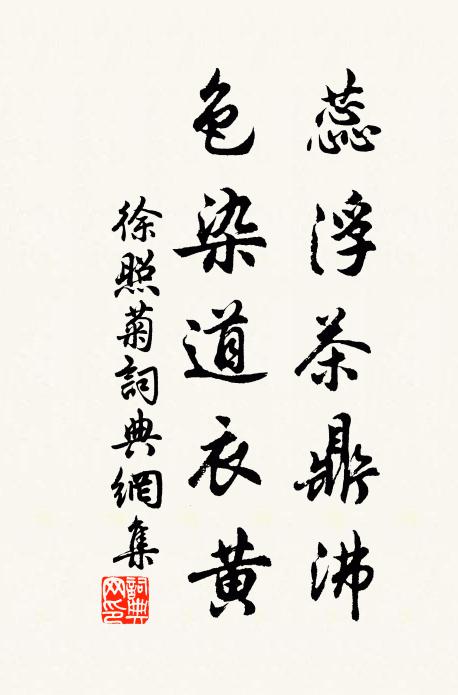 蕊浮茶鼎沸
色染道衣黄
徐照菊詞典網集
詞典网印